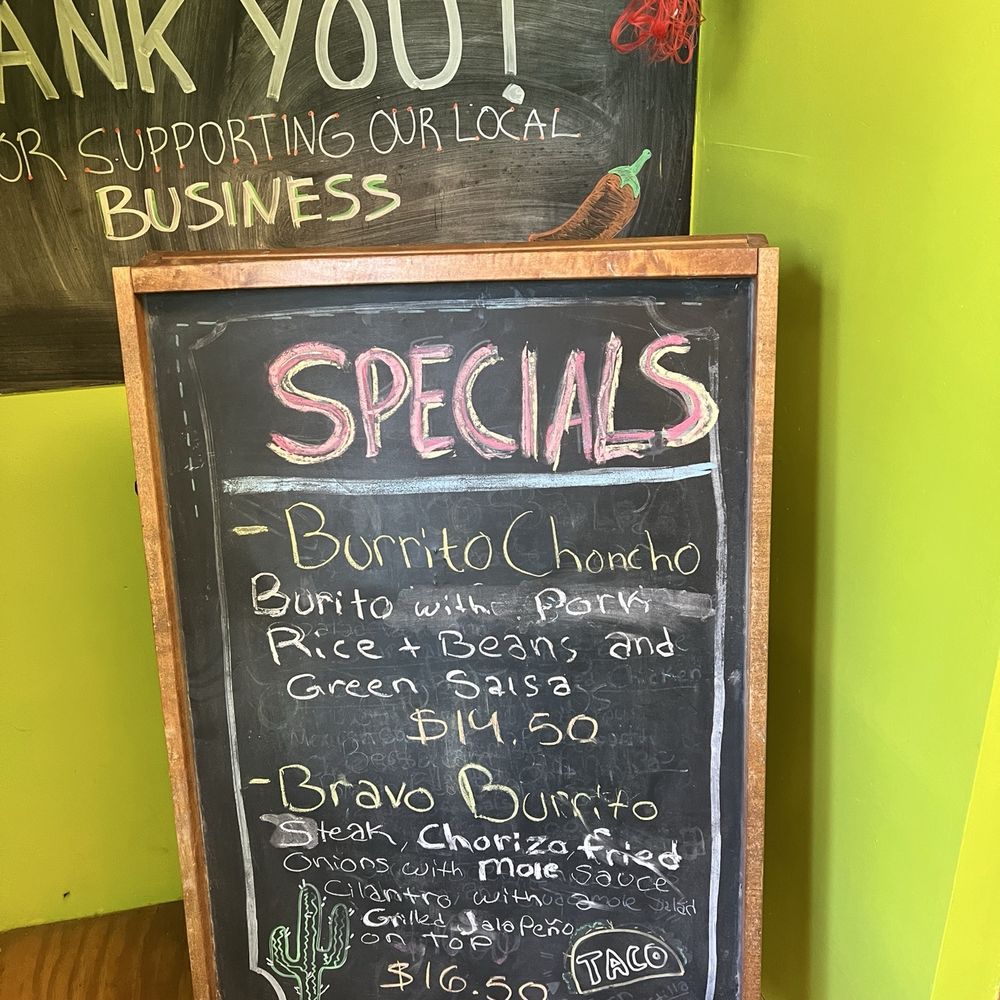 ANK YOU!
OR SUPPORTING OUR LOCAL
BUSINESS
SPECIALS
- Burrito Choncho
Burito with: Pork
Rice + Beans and
Green Salsa
$14.50
- Bravo Burrito
Steak, Chorizo, fried
Onions with Mole Sauce
Cilantro with a
Grilled JalaPeño
on top
$16.50
TACO